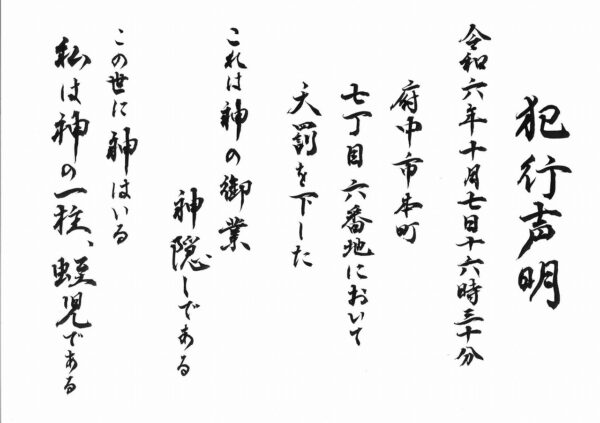 犯行声明
令和六年十月七日十六時三十分
府中市本町
七丁目六番地において
天罰を下した
これは神の御業
神隠しである
この世に神はいる
私は神の一柱、蛭児である